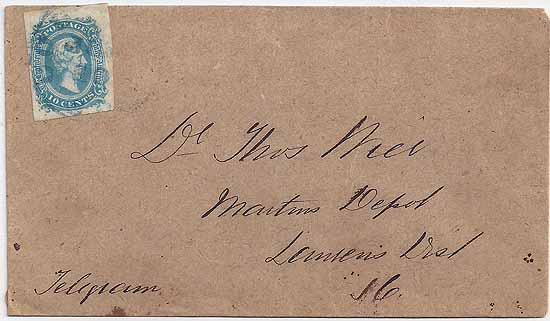 POSTAGE
10 CENTS
Dr Thos Weir
Martins Depot
Laurens Dist
SC.
Telegram